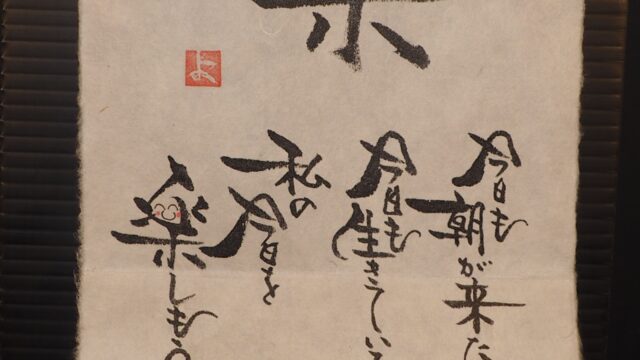 楽
今日も朝が来た
今日も生きている
私の今日を
楽しもう